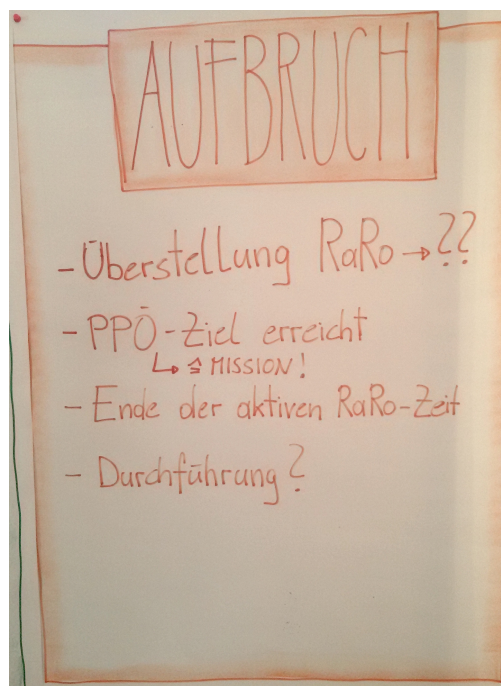 AUFBRUCH
- Überstellung RaRo → ??
- PPÖ-Ziel erreicht
↳ ≙ MISSION!
- Ende der aktiven RaRo-Zeit
- Durchführung?